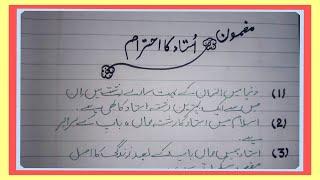 مضمون
اُستاد کا احترام
(1) دنیا میں انسان کے بہت سارے رشتے ہیں ان
میں سے ایک بہترین رشتہ استاد کا بھی ہے۔
(2) اسلام میں استاد کا رشتہ ماں باپ کے برابر
ہے۔
(3) استاد ہمیں ماں باپ کے بعد زندگی کا اصل